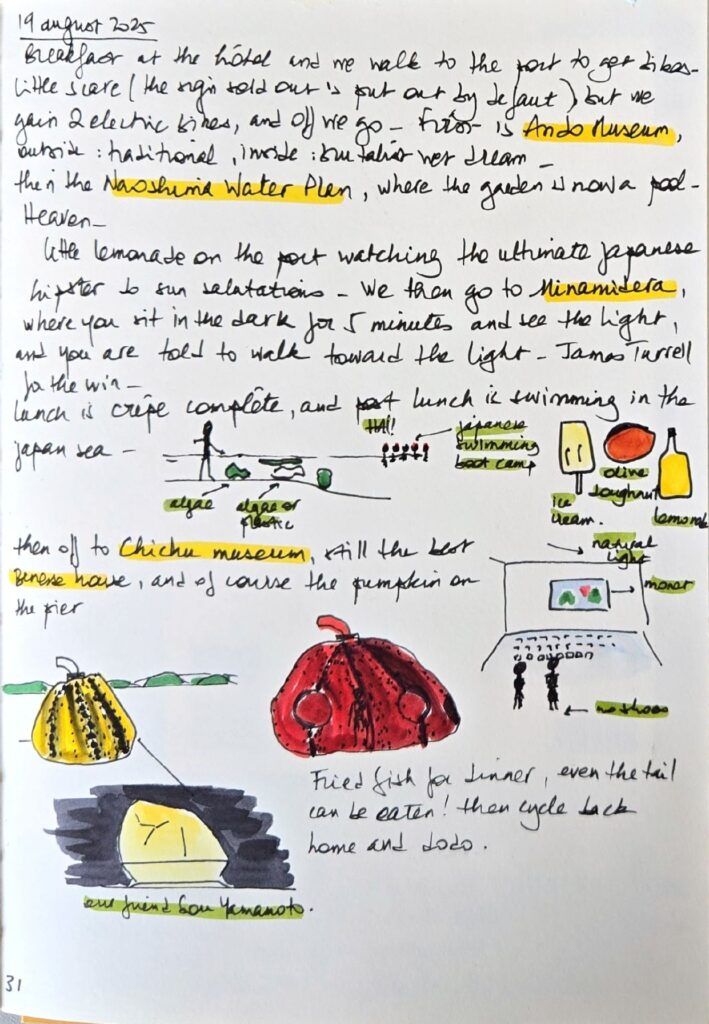 19 august 2025
Breakfast at the hôtel and we walk to the port to get bikes-
little scare (the sign sold out is put out by defaut) but we
gain 2 electric bikes, and off we go - First is Ando Museum,
outside : traditional, inside : brutalist wet dream -
then the Naoshima Water Plan, where the garden is now a pool -
Heaven -
little lemonade on the port watching the ultimate japanese
hipster do sun salutations - We then go to Minamidera,
where you sit in the dark for 5 minutes and see the light,
and you are told to walk toward the light - James Turrell
for the win -
Lunch is crêpe complête, and post lunch is swimming in the
japan sea -
japanese
swimming
boot camp
algae
algae or
plastic
ice
cream.
olive
doughnut
lemonade
then off to Chichu museum, still the best
Benesse house, and of course the pumpkin on
the pier
natural
light
monet
no shoes
Fried fish for dinner, even the tail
can be eaten! then cycle back
home and dodo.
our friend Gou Yamamoto.
31